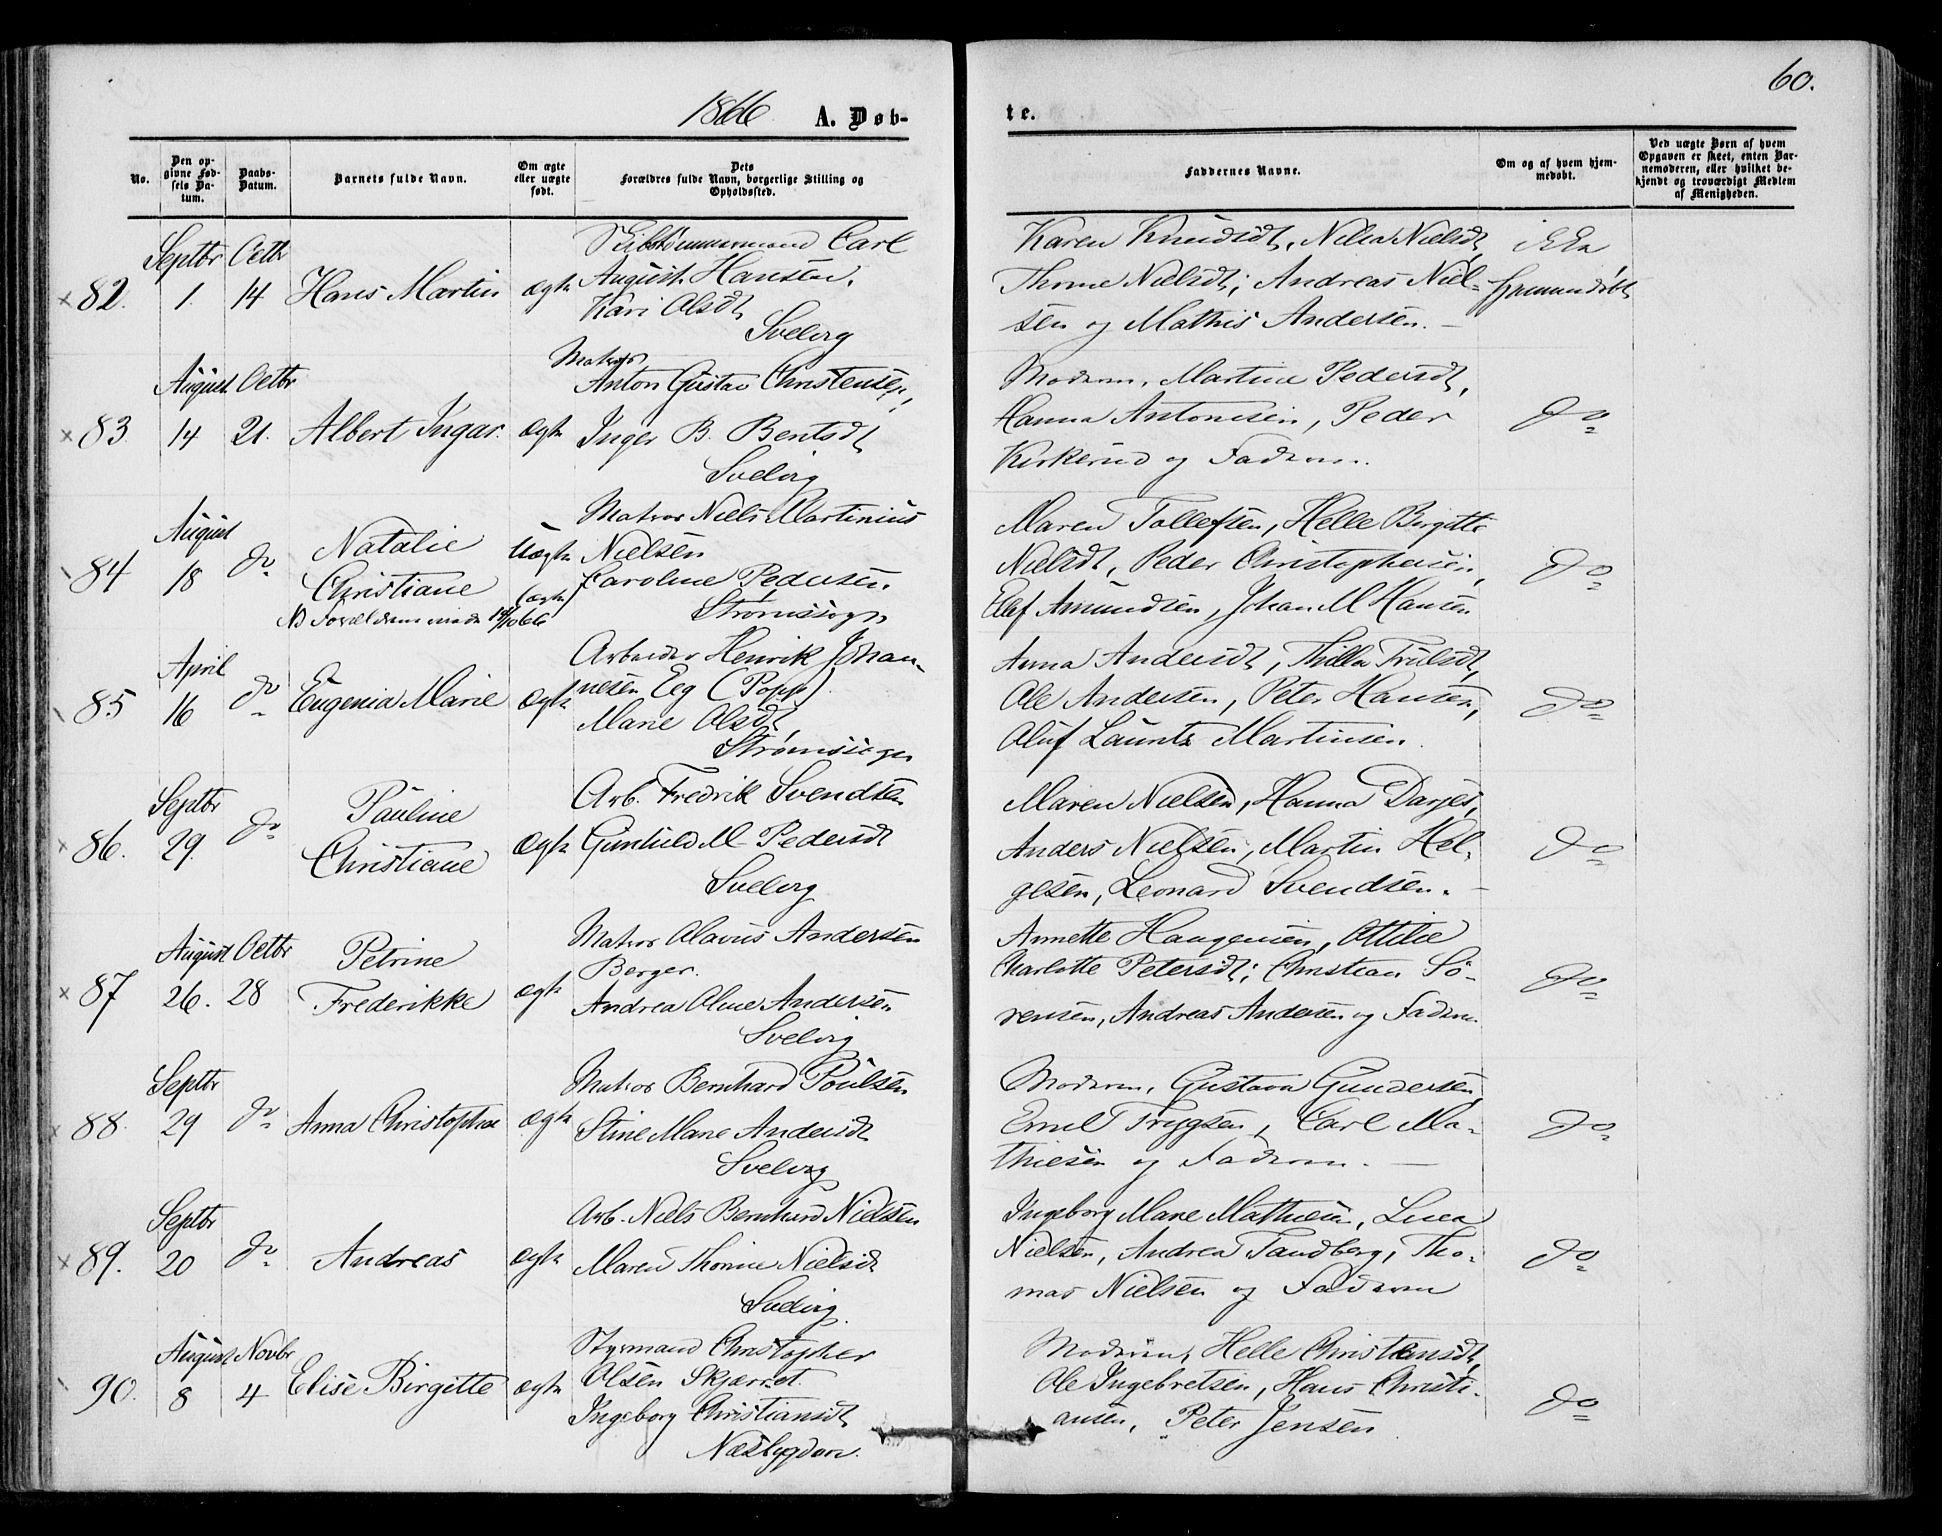 60.
1866. A. Døb-
te.
No.
Den op-
givne Fød-
sels Da-
tum.
Daabs-
Datum.
Barnets fulde Navn.
Om ægte
eller uægte
født.
Dets
Forældres fulde Navn, borgerlige Stilling og
Opholdssted.
Faddernes Navne.
Om og af hvem hjem-
medøbt.
Ved uægte Børn af hvem
Opgaven er skeet, enten Bar-
nemoderen, eller hvilket be-
kjendt og troværdigt Medlem
af Menigheden.
Septbr Octbr
82. 1. 14 Hans Martin ægte
Skibstømmermand Carl
August Hansen,
Kari Olsdt
Svelvig
Karen Knudsdt, Nilia Nielsdt,
Thrine Nielsdt; Andreas Niel-
sen og Mathis Andersen.
ikke
hjemmedøbt
August Octbr
83. 14 21. Albert Ingar. ægte
Matros
Anton Gustav Christensen,
Inger B. Bentsdt
Svelvig
Moderen, Martine Pedersdt,
Hanna Antonisen, Peder
Kirkerud og Faderen.
Do
August
84 18 do Natalie
Christiane
NB Forældrene viede 19/10 66
Uægte
(ægte)
Matros Niels Martinius
Nielsen
Caroline Pedersen,
Strømssogn
Maren Tollefsen, Helle Birgitte
Nielsdt, Peder Christophersen,
Elef Amundsen, Johan M Hansen
Do
April
85 16 do Eugenia Marie ægte
Arbeider Henrik Johan-
nesen Eeg (Popp).
Marie Olsdt
Strømssogn
Anna Andersdt, Thilla Trulsdt,
Ole Andersen, Peter Hansen,
Oluf Launtz Martinsen.
Do
Septbr
86. 29. do Pauline
Christiane
ægte
Arb. Fredrik Svendsen
Gunhild M Pedersdt
Svelvig
Maren Nielsen, Hanna Darjes,
Anders Nielsen, Martin Hel-
gesen, Leonard Svendsen.
Do
August Octbr
87 26. 28 Petrine
Frederikke
ægte
Matros Olavus Andersen
Berger.
Andrea Oline Andersen
Svelvig
Annette Haagensen, Ottilie
Charlotte Petersdt; Christian Sö-
rensen, Andreas Andersen og Faderen
Do
Septbr
88. 29 do Anna Christophine ægte
Matros Bernhard Poulsen
Stine Marie Andersdt
Svelvig
Moderen, Gustava Gundersen,
Emil Trygsen, Carl Ma-
thiesen og Faderen.
Do
Septbr
89. 20 do Andreas ægte
Arb. Niels Bernhard Nielsen
Maren Thorine Nielsdt
Svelvig.
Ingeborg Marie Mathisen, Lina
Nielsen, Andrea Tandberg, Tho-
mas Nielsen og Faderen
Do
August Novbr
90. 8 4 Elise Birgitte ægte
Styrmand Christopher
Olsen Skjærret.
Ingeborg Christiansdt
Næsbygden.
Moderen, Helle Christensdt,
Ole Ingebretsen, Hans Christi-
ansen, Peter Jensen
Do